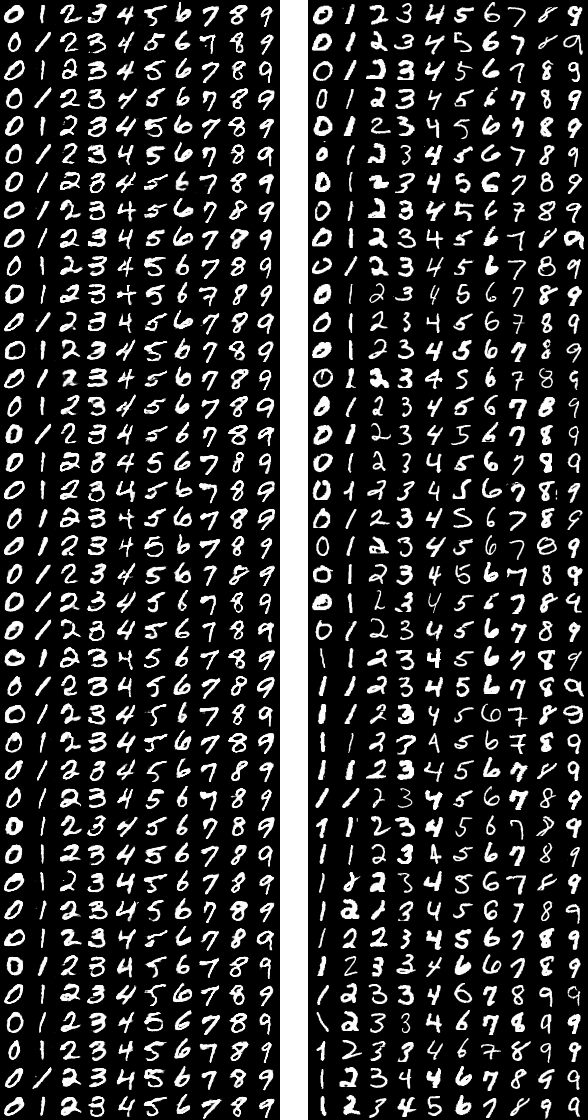 0 1 2 3 4 5 6 7 8 9
0 1 2 3 4 5 6 7 8 9
0 1 2 3 4 5 6 7 8 9
0 1 2 3 4 5 6 7 8 9
0 1 2 3 4 5 6 7 8 9
0 1 2 3 4 5 6 7 8 9
0 1 2 3 4 5 6 7 8 9
0 1 2 3 4 5 6 7 8 9
0 1 2 3 4 5 6 7 8 9
0 1 2 3 4 5 6 7 8 9
0 1 2 3 4 5 6 7 8 9
0 1 2 3 4 5 6 7 8 9
0 1 2 3 4 5 6 7 8 9
0 1 2 3 4 5 6 7 8 9
0 1 2 3 4 5 6 7 8 9
0 1 2 3 4 5 6 7 8 9
0 1 2 3 4 5 6 7 8 9
0 1 2 3 4 5 6 7 8 9
0 1 2 3 4 5 6 7 8 9
0 1 2 3 4 5 6 7 8 9
0 1 2 3 4 5 6 7 8 9
0 1 2 3 4 5 6 7 8 9
0 1 2 3 4 5 6 7 8 9
0 1 2 3 4 5 6 7 8 9
0 1 2 3 4 5 6 7 8 9
0 1 2 3 4 5 6 7 8 9
0 1 2 3 4 5 6 7 8 9
0 1 2 3 4 5 6 7 8 9
0 1 2 3 4 5 6 7 8 9
0 1 2 3 4 5 6 7 8 9
0 1 2 3 4 5 6 7 8 9
0 1 2 3 4 5 6 7 8 9
0 1 2 3 4 5 6 7 8 9
0 1 2 3 4 5 6 7 8 9
0 1 2 3 4 5 6 7 8 9
0 1 2 3 4 5 6 7 8 9
0 1 2 3 4 5 6 7 8 9
0 1 2 3 4 5 6 7 8 9
0 1 2 3 4 5 6 7 8 9
0 1 2 3 4 5 6 7 8 9
0 1 2 3 4 5 6 7 8 9
0 1 2 3 4 5 6 7 8 9
0 1 2 3 4 5 6 7 8 9
0 1 2 3 4 5 6 7 8 9
0 1 2 3 4 5 6 7 8 9
0 1 2 3 4 5 6 7 8 9
0 1 2 3 4 5 6 7 8 9
0 1 2 3 4 5 6 7 8 9
0 1 2 3 4 5 6 7 8 9
0 1 2 3 4 5 6 7 8 9
0 1 2 3 4 5 6 7 8 9
0 1 2 3 4 5 6 7 8 9
0 1 2 3 4 5 6 7 8 9
0 1 2 3 4 5 6 7 8 9
0 1 2 3 4 5 6 7 8 9
0 1 2 3 4 5 6 7 8 9
0 1 2 3 4 5 6 7 8 9
0 1 2 3 4 5 6 7 8 9
0 1 2 3 4 5 6 7 8 9
0 1 2 3 4 5 6 7 8 9
0 1 2 3 4 5 6 7 8 9
0 1 2 3 4 5 6 7 8 9
0 1 2 3 4 5 6 7 8 9
1 1 2 3 4 5 6 7 8 9
1 1 2 3 4 5 6 7 8 9
1 1 2 3 4 5 6 7 8 9
1 1 2 3 4 5 6 7 8 9
1 1 2 3 4 5 6 7 8 9
1 1 2 3 4 5 6 7 8 9
1 1 2 3 4 5 6 7 8 9
1 1 2 3 4 5 6 7 8 9
1 8 2 3 4 5 6 7 8 9
1 2 1 3 4 5 6 7 8 9
1 2 2 3 4 5 6 7 8 9
1 2 3 3 4 6 6 7 8 9
1 2 3 3 4 6 7 8 9 9
1 2 3 3 4 6 7 8 9 9
1 2 3 3 4 6 7 8 9 9
1 2 3 4 4 6 7 8 9 9
1 2 7 4 5 6 7 8 9 9